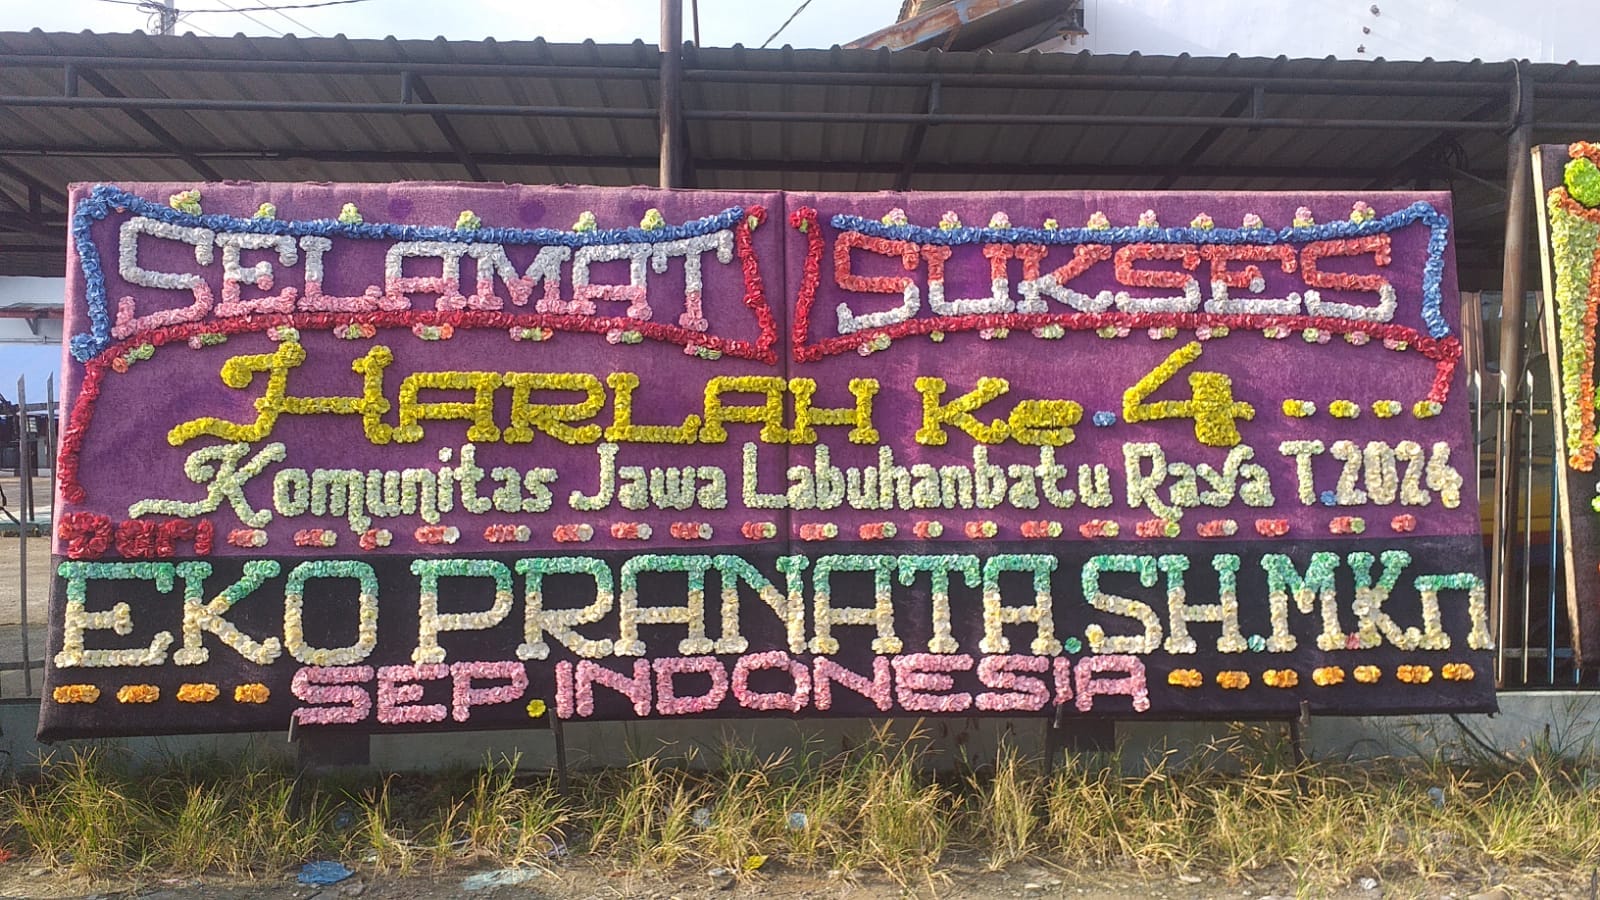 SELAMAT SUKSES
HARLAH Ke.4
Komunitas Jawa Labuhanbatu Raya T.2024
Dari
EKO PRANATA.SH.MKn
SEP.INDONESIA